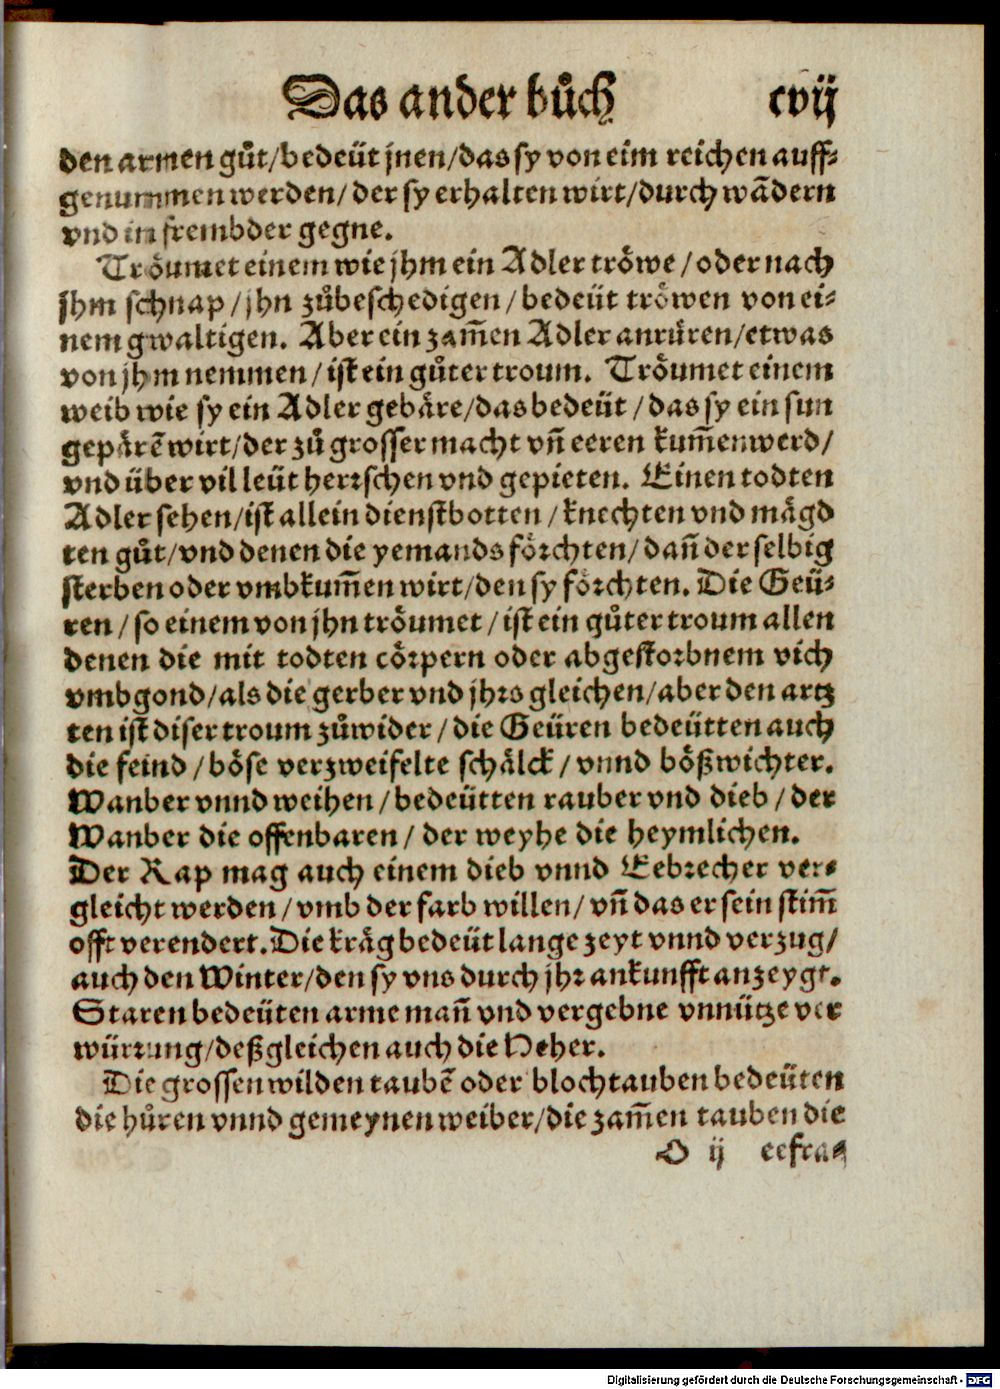 Das ander bůch cvij
den armen gůt/bedeüt jnen/das sy von eim reichen auff⸗
genummen werden/der sy erhalten wirt/durch wādern
vnd in frembder gegne.
Tröumet einem wie jhm ein Adler tröwe/oder nach
jhm schnap/jhn zůbeschedigen/bedeüt tröwen von ei⸗
nem gwaltigen. Aber ein zam̄en Adler anrüren/etwas
von jhm nemmen/ist ein gůter troum. Tröumet einem
weib wie sy ein Adler gebäre/das bedeüt/das sy ein sun
gepärē wirt/der zů grosser macht vn̄ eeren kum̄en werd/
vnd über vil leüt herrschen vnd gepieten. Einen todten
Adler sehen/ist allein dienstbotten/knechten vnd mägd
ten gůt/vnd denen die yemands förchten/dan̄ der selbig
sterben oder vmbkum̄en wirt/den sy förchten. Die Geü⸗
ren/so einem von jhn tröumet/ist ein gůter troum allen
denen die mit todten cörpern oder abgestorbnem vich
vmbgond/als die gerber vnd jhrs gleichen/aber den artz
ten ist diser troum zůwider/die Geüren bedeütten auch
die feind/böse verzweifelte schälck/vnnd bößwichter.
Wanber vnnd weihen/bedeütten rauber vnd dieb/der
Wanber die offenbaren/der weyhe die heymlichen.
Der Rap mag auch einem dieb vnnd Eebrecher ver⸗
gleicht werden/vmb der farb willen/vn̄ das er sein stim̄
offt verendert. Die kräg bedeüt lange zeyt vnnd verzug/
auch den Winter/den sy vns durch jhr ankunfft anzeygt.
Staren bedeüten arme man̄ vnd vergebne vnnütze ver
würrung/deßgleichen auch die Heher.
Die grossen wilden taubē oder blochtauben bedeüten
die hůren vnnd gemeynen weiber/die zam̄en tauben die
O ij eefra⸗
Digitalisierung gefördert durch die Deutsche Forschungsgemeinschaft - DFG